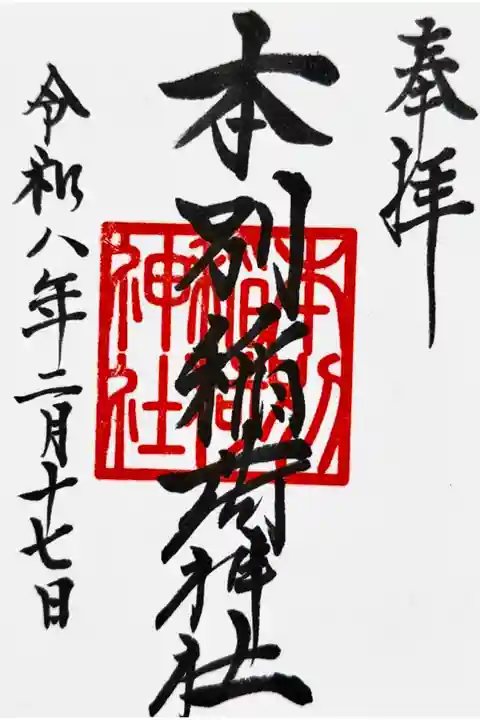 奉拝
本別稲荷神社
本別
稲荷
神社
令和八年二月十七日